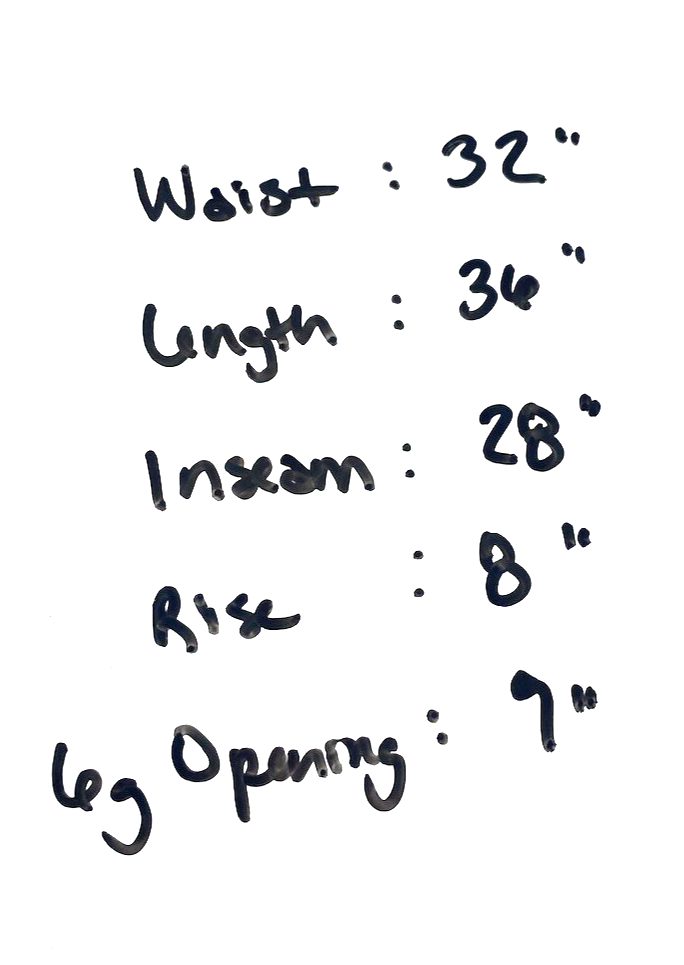 Waist : 32"
Length : 36"
Inseam : 28"
Rise : 8"
Leg Opening : 9"